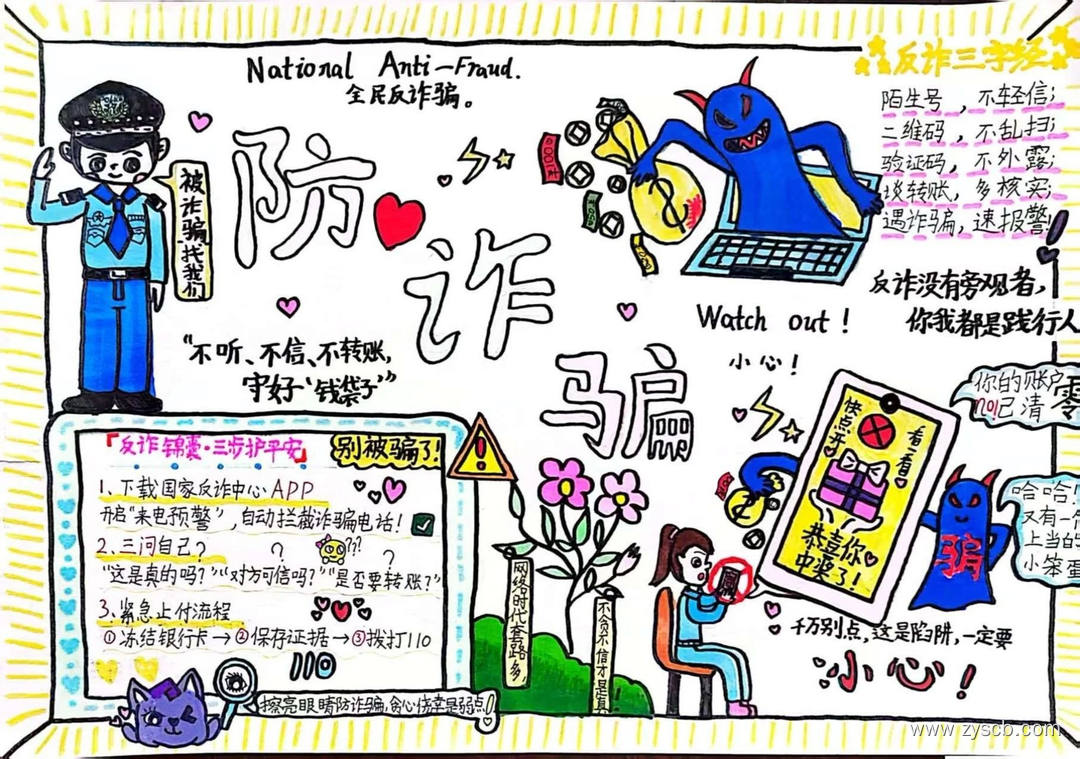 National Anti-Fraud.
全民反诈骗。
反诈三字经
陌生号，不轻信；
二维码，不乱扫；
验证码，不外露；
谈转账，多核实；
遇诈骗，速报警！
被诈骗找我们
防
诈
骗
反诈没有旁观者，
你我都是践行人
Watch out!
小心！
“不听、不信、不转账，
守好‘钱袋子’”
你的账户
no!已清零
「反诈锦囊·三步护平安」
别被骗了!
1、下载国家反诈中心APP
开启“来电预警”，自动拦截诈骗电话！
2、三问自己？
“这是真的吗？”“对方可信吗？”“是否要转账？”
3、紧急止付流程
①冻结银行卡→②保存证据→③拨打110
110
擦亮眼睛防诈骗，贪心侥幸是弱点！
网络时代套路多，
不贪不信才是真
快点开
看一看
恭喜你
中奖了！
骗
哈哈！
又有一个
上当的
小笨蛋
千万别点，这是陷阱，一定要
小心！
www.zyscb.com